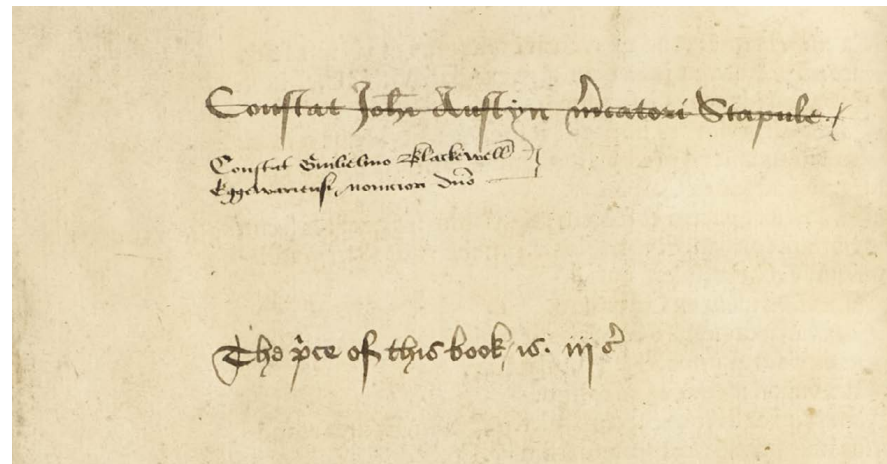 Constat Johi Austyn m̃catori Stapule
Constat Guilielmo Blackewell
Eggewarensi nouiciori dn̄o
The p̃ce of this book is. iij s̃